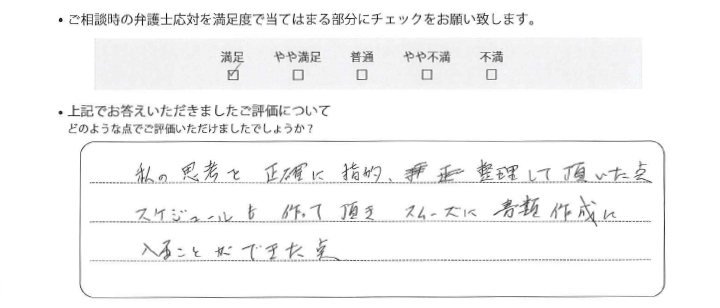 ・ご相談時の弁護士応対を満足度で当てはまる部分にチェックをお願い致します。
満足 やや満足 普通 やや不満 不満
☑ □ □ □ □
・上記でお答えいただきましたご評価について
どのような点でご評価いただけましたでしょうか？
私の思考を正確に指摘、整理して頂いた点
スケジュールも作って頂き スムーズに書類作成に
入ることができた点